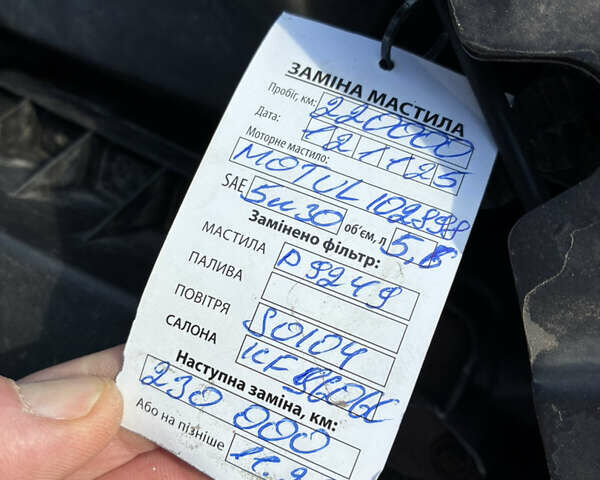 ЗАМІНА МАСТИЛА
Пробіг, км: 220000
Дата: 12 11 25
Моторне мастило:
MOTUL 102898
SAE 5w30 об'єм, л 5,
Замінено фільтр:
МАСТИЛА P9249
ПАЛИВА
ПОВІТРЯ S0104
САЛОНА
Наступна заміна, км:
230 000
Або на пізніше